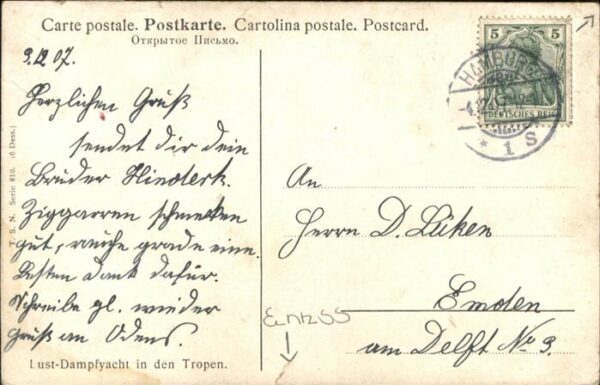 Carte postale. Postkarte. Cartolina postale. Postcard.
Открытое Письмо.
5 5
DEUTSCHES REICH
HAMBURG
* 1 S
3.12.07.
Herzlichen Gruß
sendet dir dein
Bruder Hinderk.
Ziggarren schmecken
gut, rauche grade eine.
Besten Dank dafür.
Schreibe gl. wieder
Gruß an Odens.
An
Herrn D. Lüken
Emden
am Delft No 9.
T. S. N. Serie 810. (6 Dess.)
Lust-Dampfyacht in den Tropen.